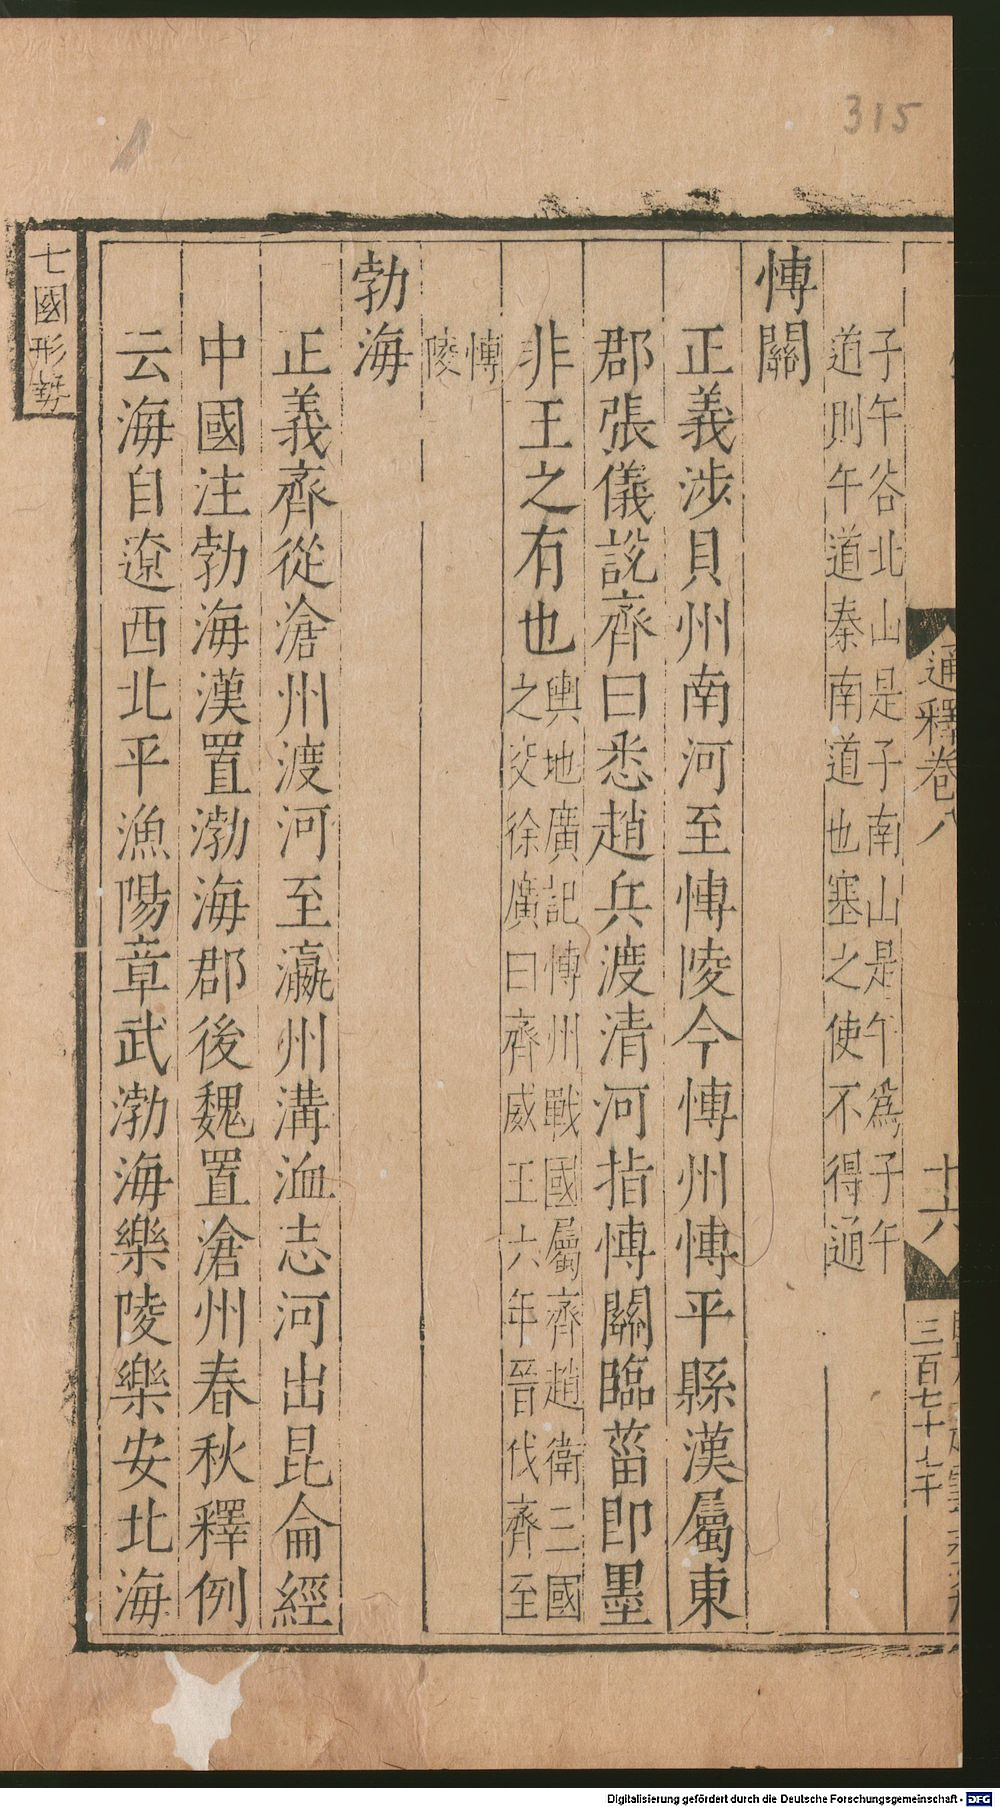 315
通釋卷八
十六
三百七十七
子午谷北山是子南山是午爲子午
道則午道秦南道也塞之使不得通
愽關
正義涉貝州南河至愽陵今愽州愽平縣漢屬東
郡張儀說齊曰悉趙兵渡清河指愽關臨菑即墨
非王之有也輿地廣記愽州戰國屬齊趙衛三國
之交徐廣曰齊威王六年晉伐齊至
愽
陵
勃海
正義齊從滄州渡河至瀛州溝洫志河出昆侖經
中國注勃海漢置渤海郡後魏置滄州春秋釋例
云海自遼西北平漁陽章武渤海樂陵樂安北海
七國形勢
Digitalisierung gefördert durch die Deutsche Forschungsgemeinschaft - DFG